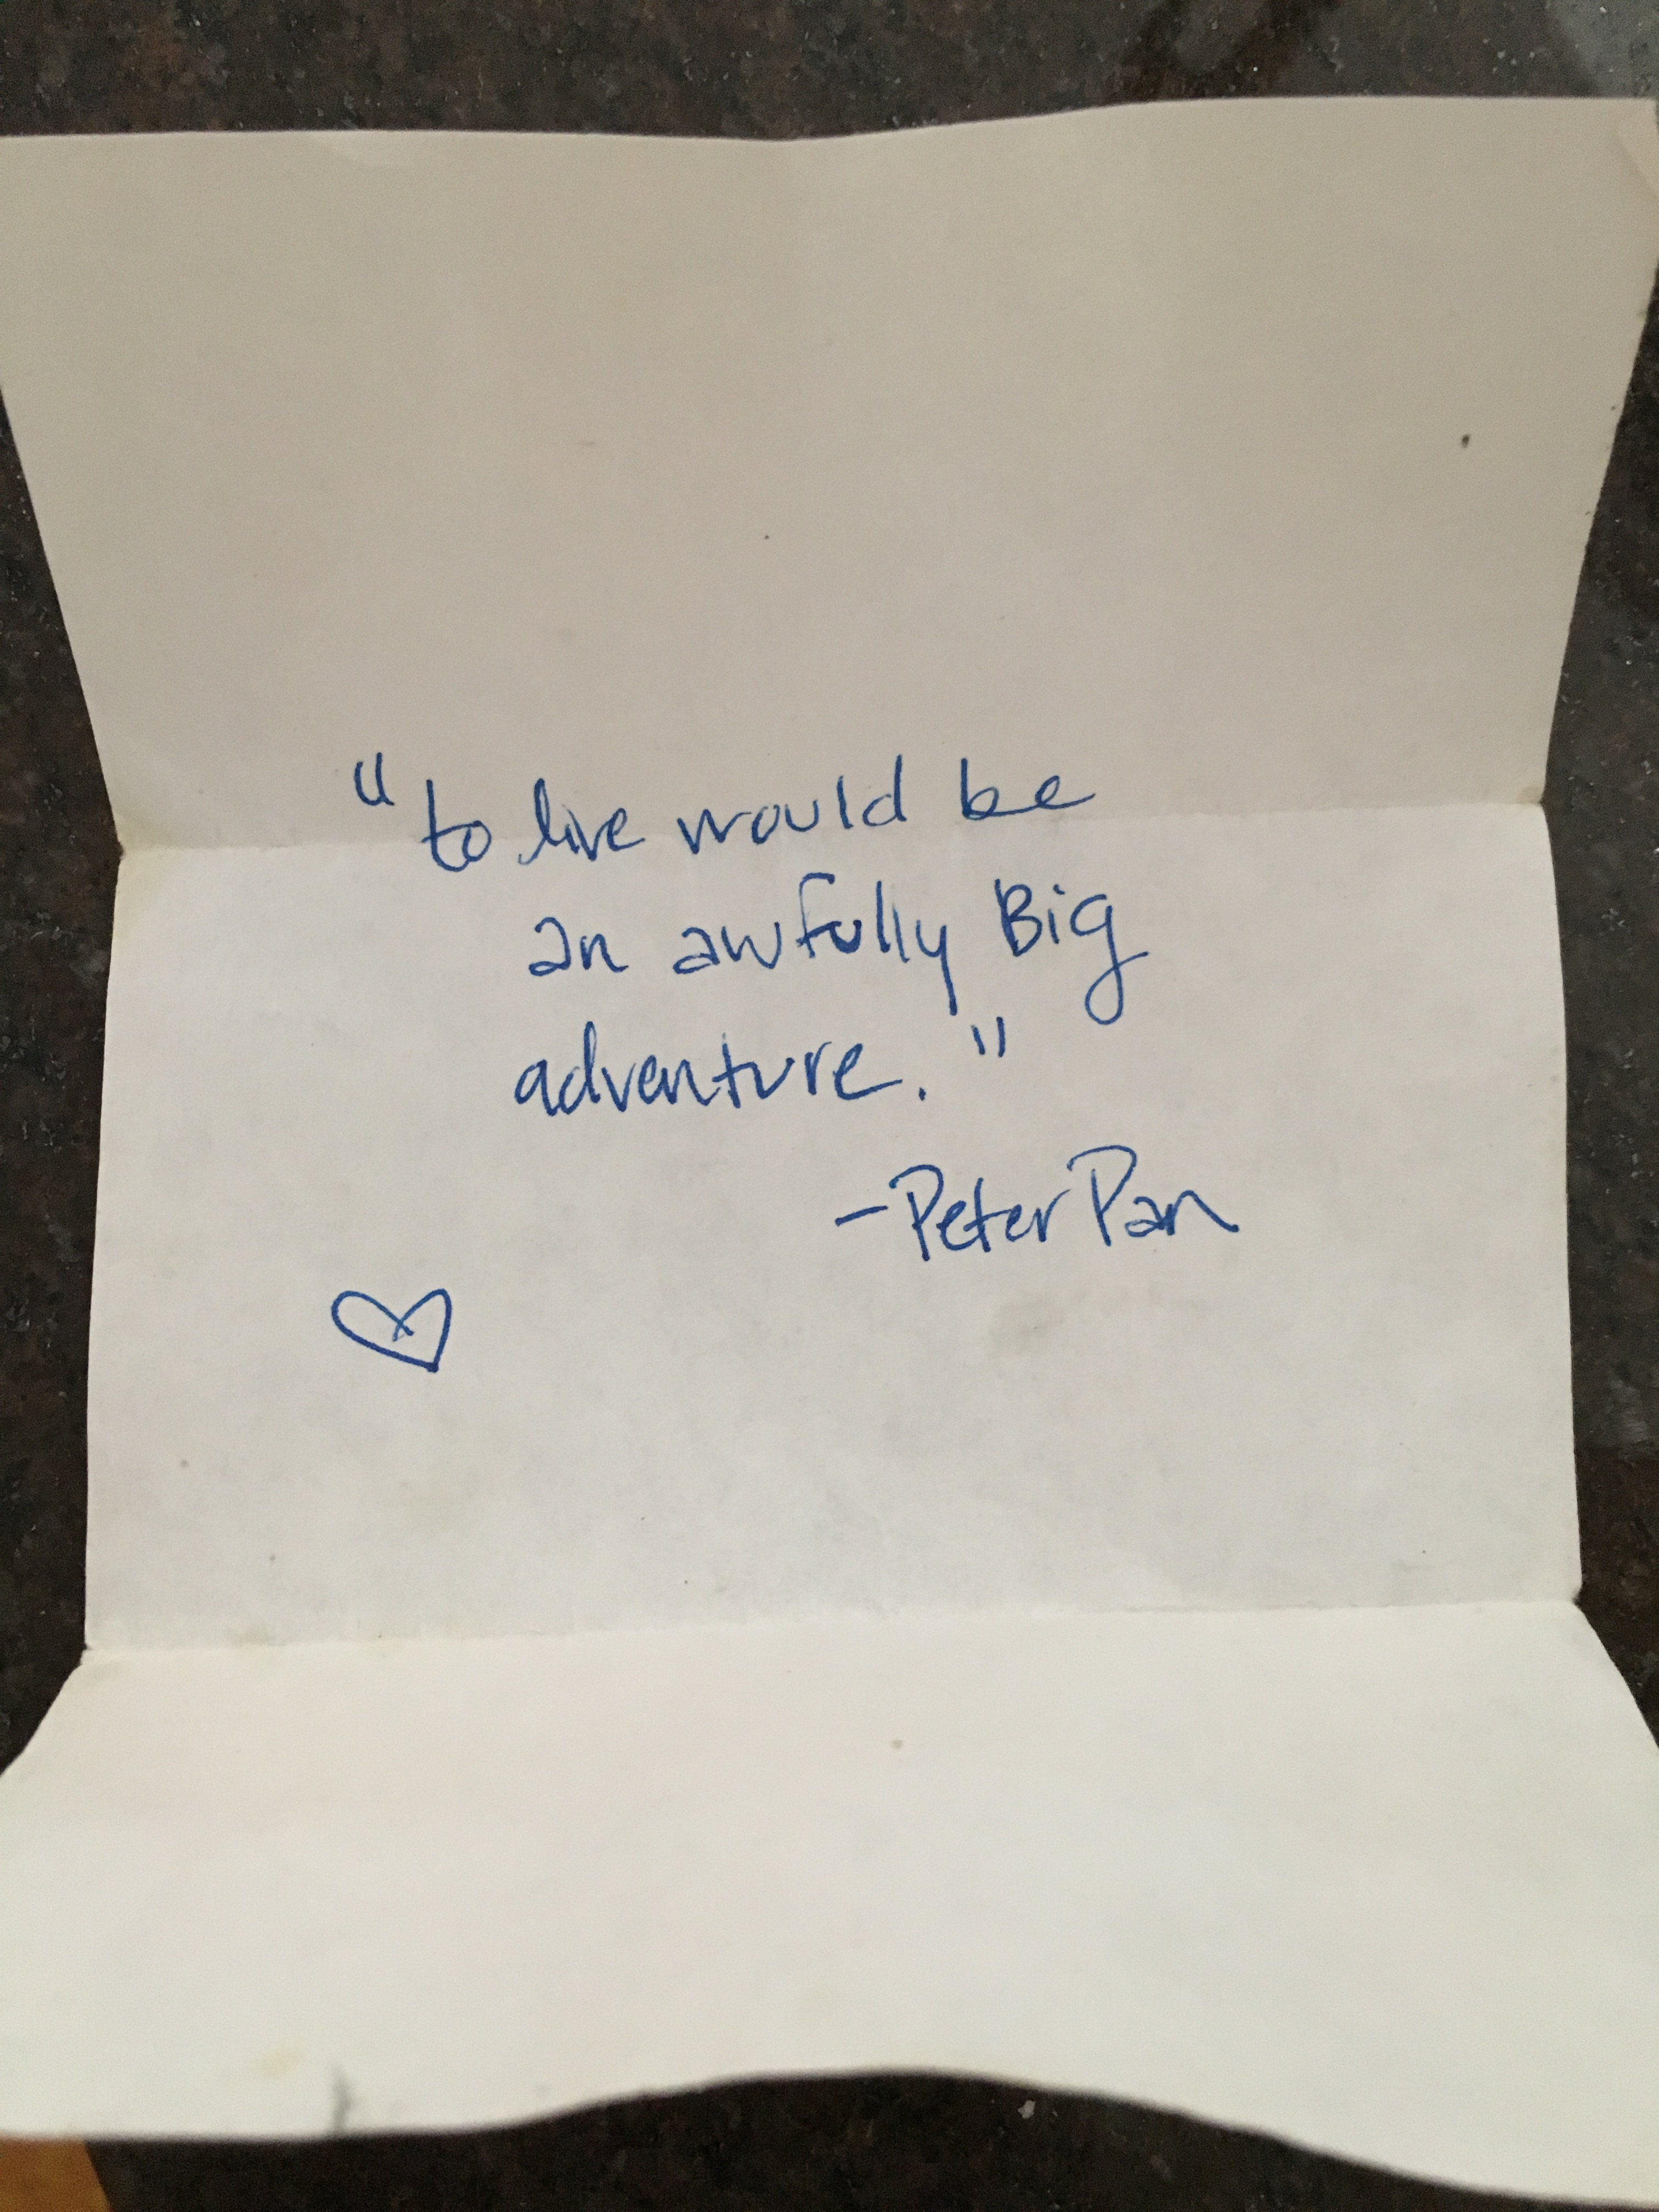 "to live would be
an awfully Big
adventure."
-Peter Pan